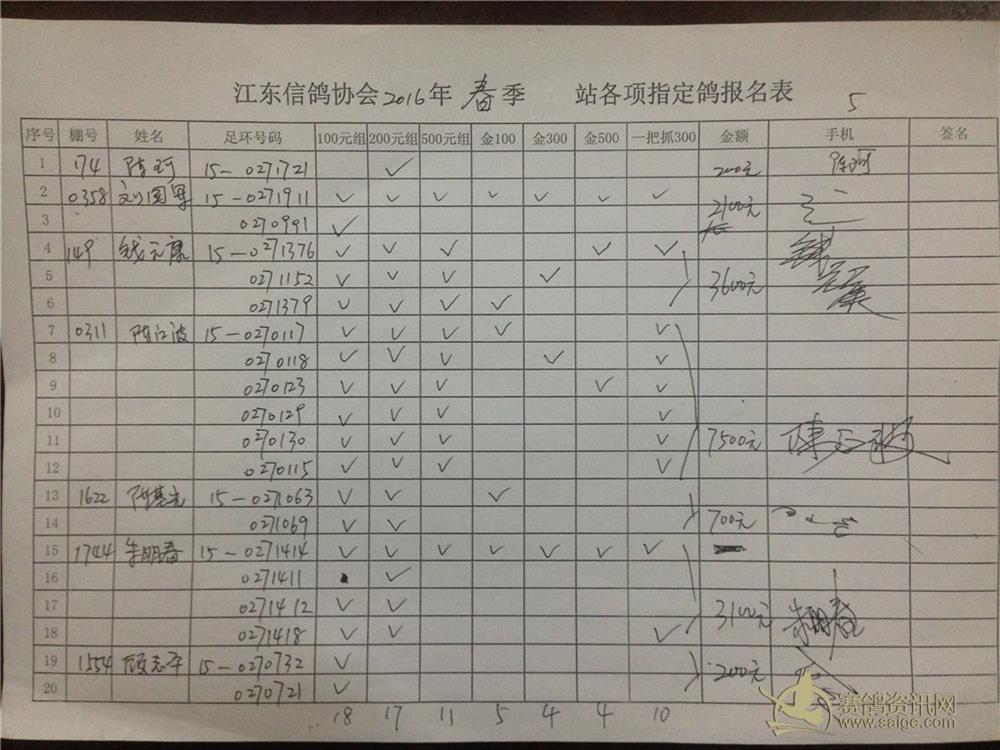 江东信鸽协会2016年 春季 站各项指定鸽报名表 5
序号 棚号 姓名 足环号码 100元组 200元组 500元组 金100 金300 金500 一把抓300 金额 手机 签名
1 174 陈珂 15-0271721 ✓ 200元 陈珂
2 0358 刘国军 15-0271911 ✓ ✓ ✓ ✓ ✓ ✓ ✓ 2100元
3 0270991 ✓
4 149 钱元康 15-0271376 ✓ ✓ ✓ ✓ ✓ 钱元康
5 0271152 ✓ ✓ ✓ ✓ 3600元
6 0271379 ✓ ✓ ✓ ✓
7 0311 陈江波 15-0270117 ✓ ✓ ✓ ✓ ✓
8 0270118 ✓ ✓ ✓ ✓ ✓
9 0270123 ✓ ✓ ✓ ✓ ✓
10 0270129 ✓ ✓ ✓ ✓
11 0270130 ✓ ✓ ✓ ✓ 7500元
12 0270115 ✓ ✓ ✓ ✓
13 1622 15-0271063 ✓ ✓ ✓
14 0271069 ✓ ✓ 700元
15 1744 朱明春 15-0271414 ✓ ✓ ✓ ✓ ✓ ✓ ✓
16 0271411 ✓
17 0271412 ✓ ✓ 3100元 朱明春
18 0271418 ✓ ✓ ✓
19 1554 顾志平 15-0270732 ✓ 200元
20 0270721 ✓
18 17 11 5 4 4 10
赛鸽资讯网
www.saigc.com